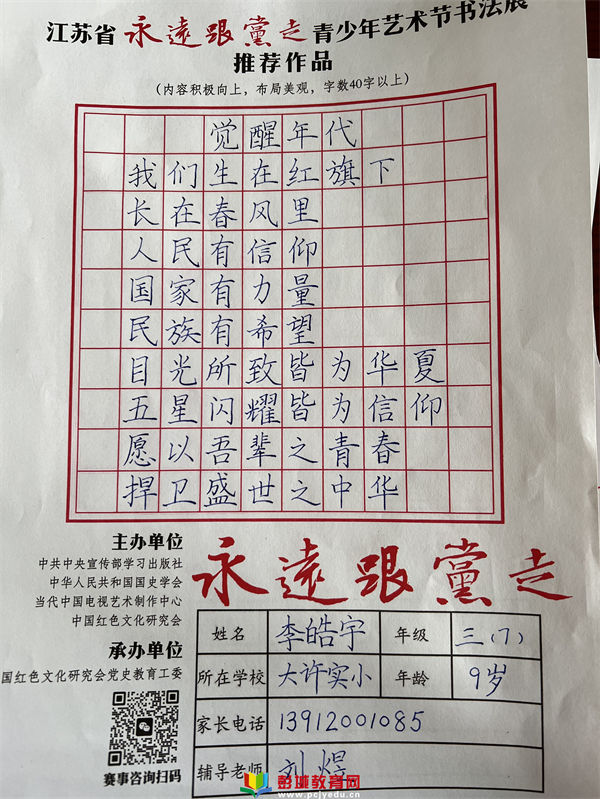 江苏省 永遠跟黨走 青少年艺术节书法展
推荐作品
（内容积极向上，布局美观，字数40字以上）
觉醒年代
我们生在红旗下
长在春风里
人民有信仰
国家有力量
民族有希望
目光所致皆为华夏
五星闪耀皆为信仰
愿以吾辈之青春
捍卫盛世之中华
主办单位
中共中央宣传部学习出版社
中华人民共和国国史学会
当代中国电视艺术制作中心
中国红色文化研究会
承办单位
国红色文化研究会党史教育工委
赛事咨询扫码
永遠跟黨走
姓名 李皓宇 年级 三（7）
所在学校 大许实小 年龄 9岁
家长电话 13912001085
辅导老师 刘煜
彭城教育网
www.pcjyedu.cn